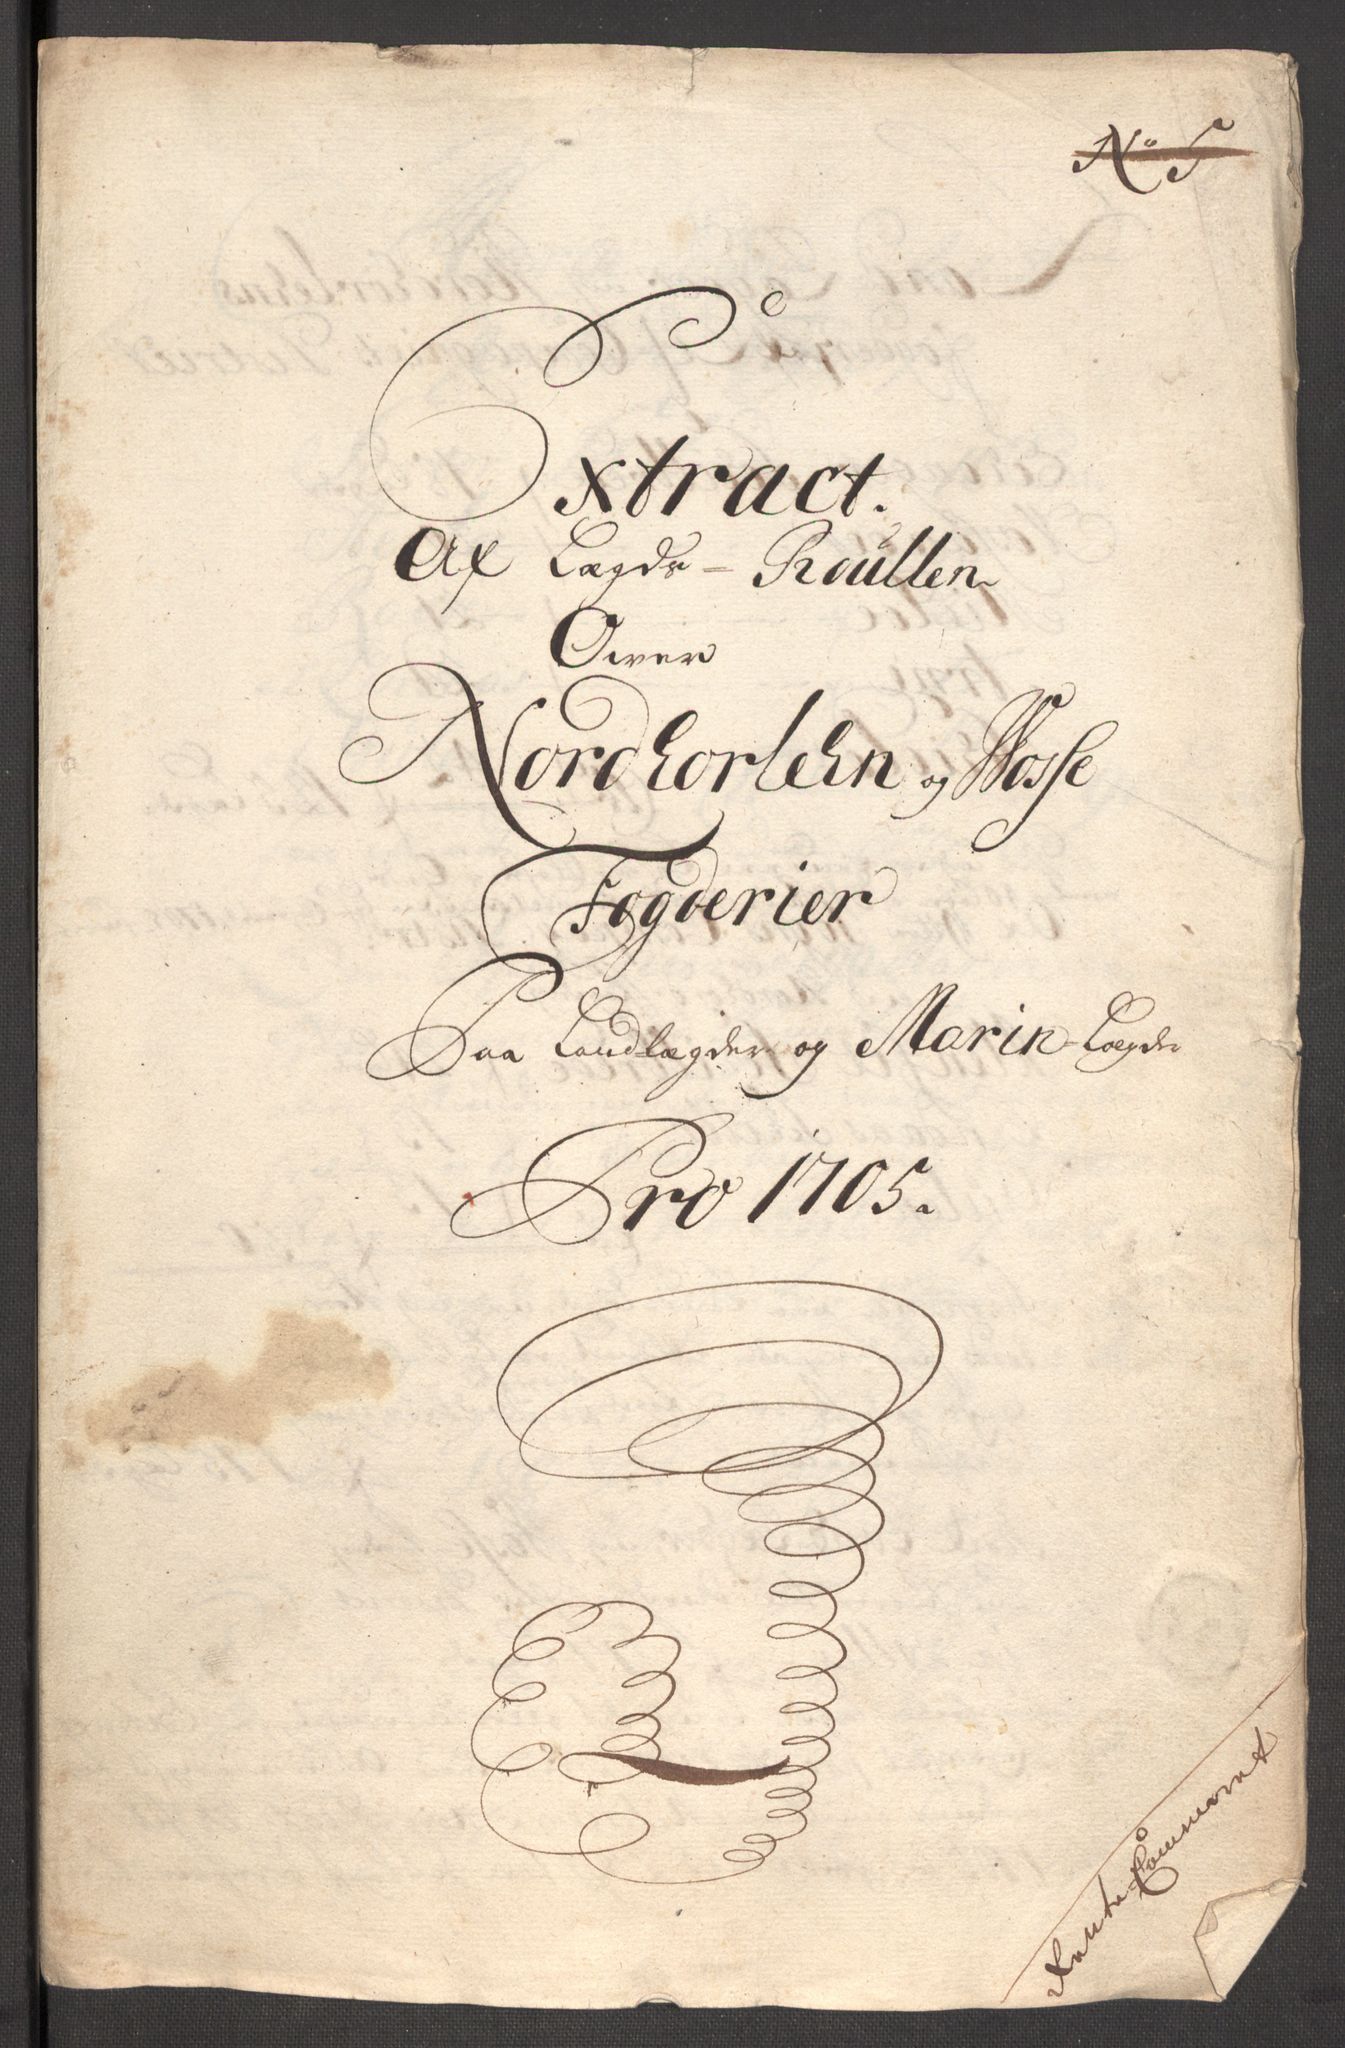 No 5
Extract.
Af Lægds-Roullen
Over
Nordhorlehn og Wosse
Fogderier
Paa Landlægder og Marin-Lægder
Pro 1705.